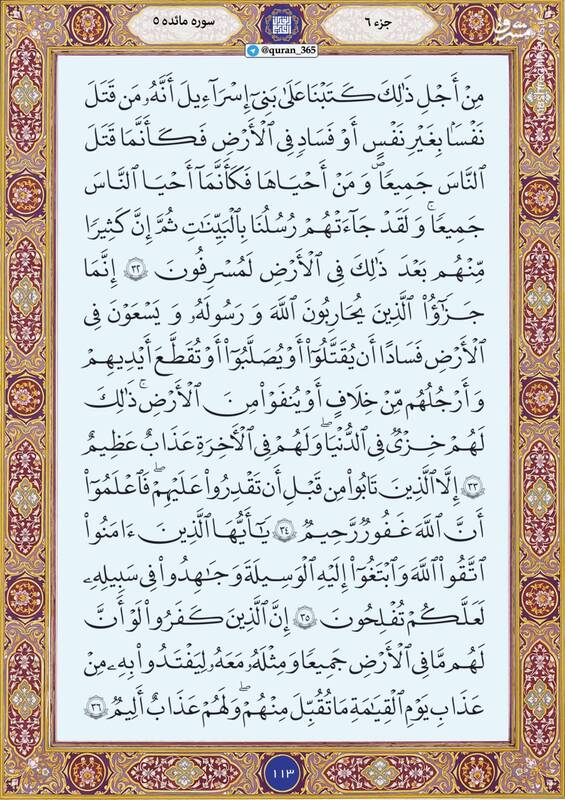 جزء ۶
سوره مائده ۵
@quran_365
مِنْ أَجْلِ ذَٰلِكَ كَتَبْنَا عَلَىٰ بَنِىٓ إِسْرَآءِيلَ أَنَّهُۥ مَن قَتَلَ
نَفْسًۢا بِغَيْرِ نَفْسٍ أَوْ فَسَادٍ فِى ٱلْأَرْضِ فَكَأَنَّمَا قَتَلَ
ٱلنَّاسَ جَمِيعًا وَ مَنْ أَحْيَاهَا فَكَأَنَّمَآ أَحْيَا ٱلنَّاسَ
جَمِيعًاۚ وَ لَقَدْ جَآءَتْهُمْ رُسُلُنَا بِٱلْبَيِّنَٰتِ ثُمَّ إِنَّ كَثِيرًا
مِّنْهُم بَعْدَ ذَٰلِكَ فِى ٱلْأَرْضِ لَمُسْرِفُونَ ۳۲ إِنَّمَا
جَزَٰٓؤُا۟ ٱلَّذِينَ يُحَارِبُونَ ٱللَّهَ وَ رَسُولَهُۥ وَ يَسْعَوْنَ فِى
ٱلْأَرْضِ فَسَادًا أَن يُقَتَّلُوٓا۟ أَوْ يُصَلَّبُوٓا۟ أَوْ تُقَطَّعَ أَيْدِيهِمْ
وَ أَرْجُلُهُم مِّنْ خِلَافٍ أَوْ يُنفَوْا۟ مِنَ ٱلْأَرْضِۚ ذَٰلِكَ
لَهُمْ خِزْىٌ فِى ٱلدُّنْيَاۖ وَ لَهُمْ فِى ٱلْأَخِرَةِ عَذَابٌ عَظِيمٌ
۳۳ إِلَّا ٱلَّذِينَ تَابُوا۟ مِن قَبْلِ أَن تَقْدِرُوا۟ عَلَيْهِمْۖ فَٱعْلَمُوٓا۟
أَنَّ ٱللَّهَ غَفُورٌ رَّحِيمٌ ۳۴ يَٰٓأَيُّهَا ٱلَّذِينَ ءَامَنُوا۟
ٱتَّقُوا۟ ٱللَّهَ وَ ٱبْتَغُوٓا۟ إِلَيْهِ ٱلْوَسِيلَةَ وَ جَٰهِدُوا۟ فِى سَبِيلِهِۦ
لَعَلَّكُمْ تُفْلِحُونَ ۳۵ إِنَّ ٱلَّذِينَ كَفَرُوا۟ لَوْ أَنَّ
لَهُم مَّا فِى ٱلْأَرْضِ جَمِيعًا وَ مِثْلَهُۥ مَعَهُۥ لِيَفْتَدُوا۟ بِهِۦ مِنْ
عَذَابِ يَوْمِ ٱلْقِيَٰمَةِ مَا تُقُبِّلَ مِنْهُمْۖ وَ لَهُمْ عَذَابٌ أَلِيمٌ ۳۶
۱۱۳